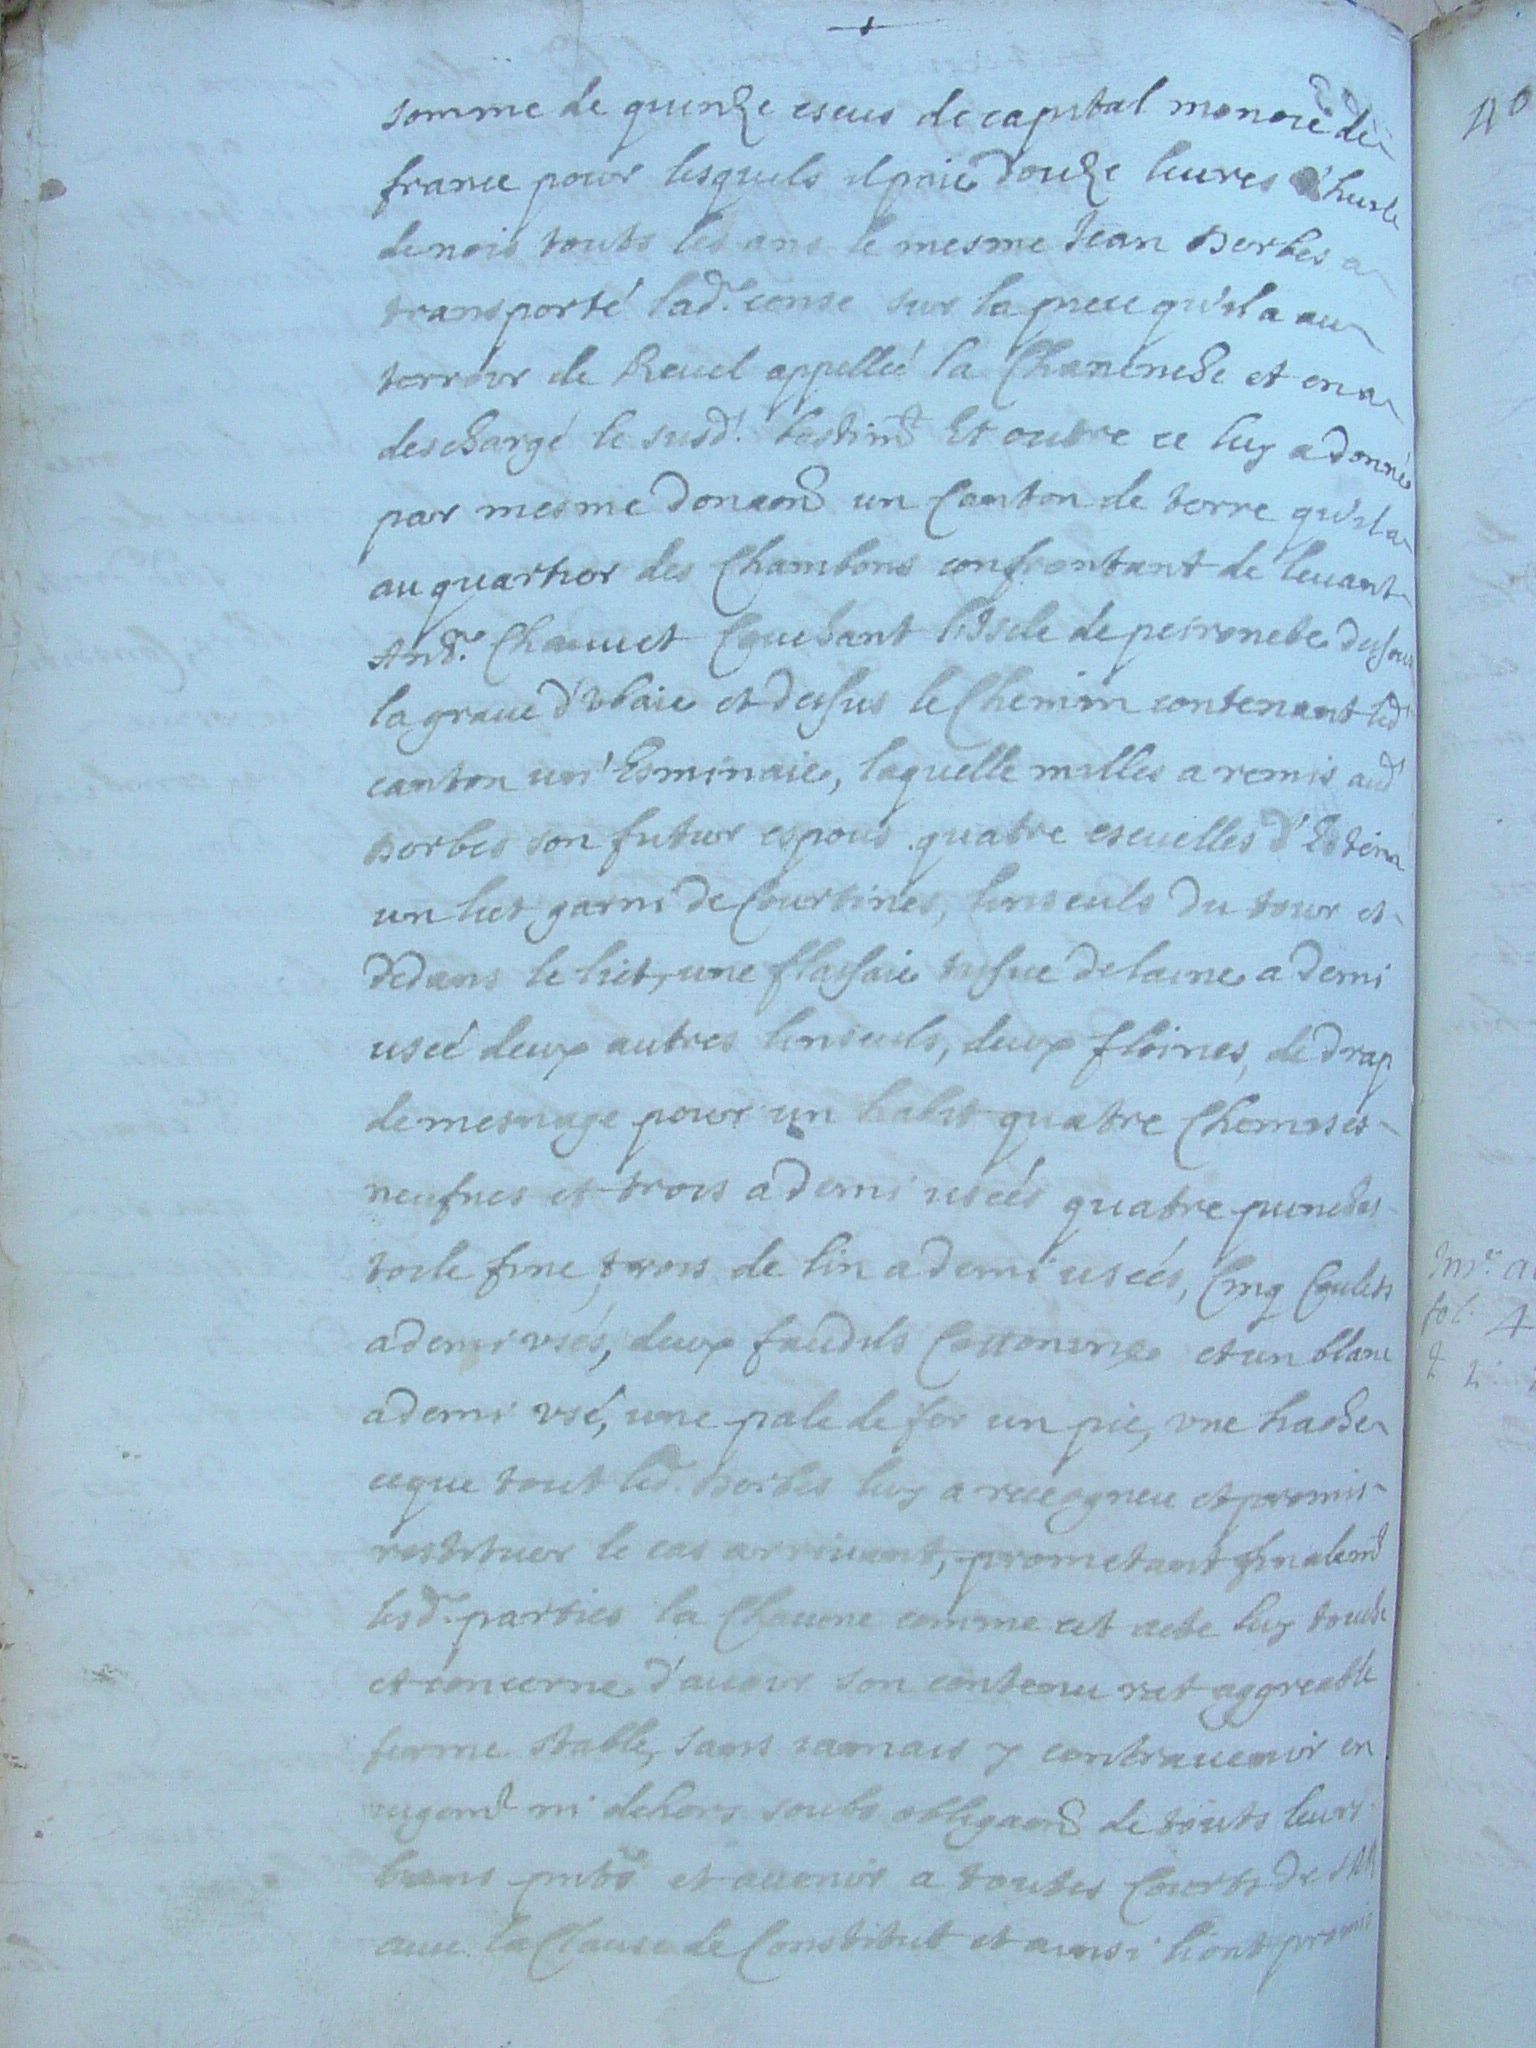 somme de quinze escus de capital monoie de
france pour lesquels il paie douze liures d'huile
de nois touts les ans le mesme Jean Borbes a
transporté lad.e cense sur la piece qu'il a au
terroir de Reuel appelleé la Chanenche et en a
deschargé le susd.t bastim.t Et outre ce luy a donné
par mesme donaon un Canton de terre qu'il a
au quartier des Chambons confrontant de leuant
And.e Chauuet Couchant l'Iscle de peironete dessous
la graue d'Vbaie et dessus le Chemim contenant led.
canton un' Esminaie, laquelle milles a remis aud.
Borbes son futur espous quatre escuelles d'Estim
un lict garni de Courtines, linseuls du tour et
dedans le lict, une flassaie tissue de laine a demi
useé deux autres linseuls, deux floines, de drap
de mesnage pour un habit quatre Chemises
neufues et trois a demi useés quatre punches
toile fine trois de lin a demi useés, Cinq Coulets
a demi vsés, deux faudils Cottonine et un blanc
a demi vsé, une pale de fer un pic, vne hache
ce que tout led. Borbes luy a recogneu et promis
restituer le cas arriuant, prometant finalem.t
lesd. parties la Chacune comme cet acte luy touche
et concerne d'auoir son contenu rat aggreable
ferme stable, sans iamais y contreuenir en
iugem.t ni dehors soubs obligaon de touts leurs
biens pnts et auenir a toutes Courts de SAR
auec la Clause de Constitut et ainsi l'ont promis
40
fol. 4